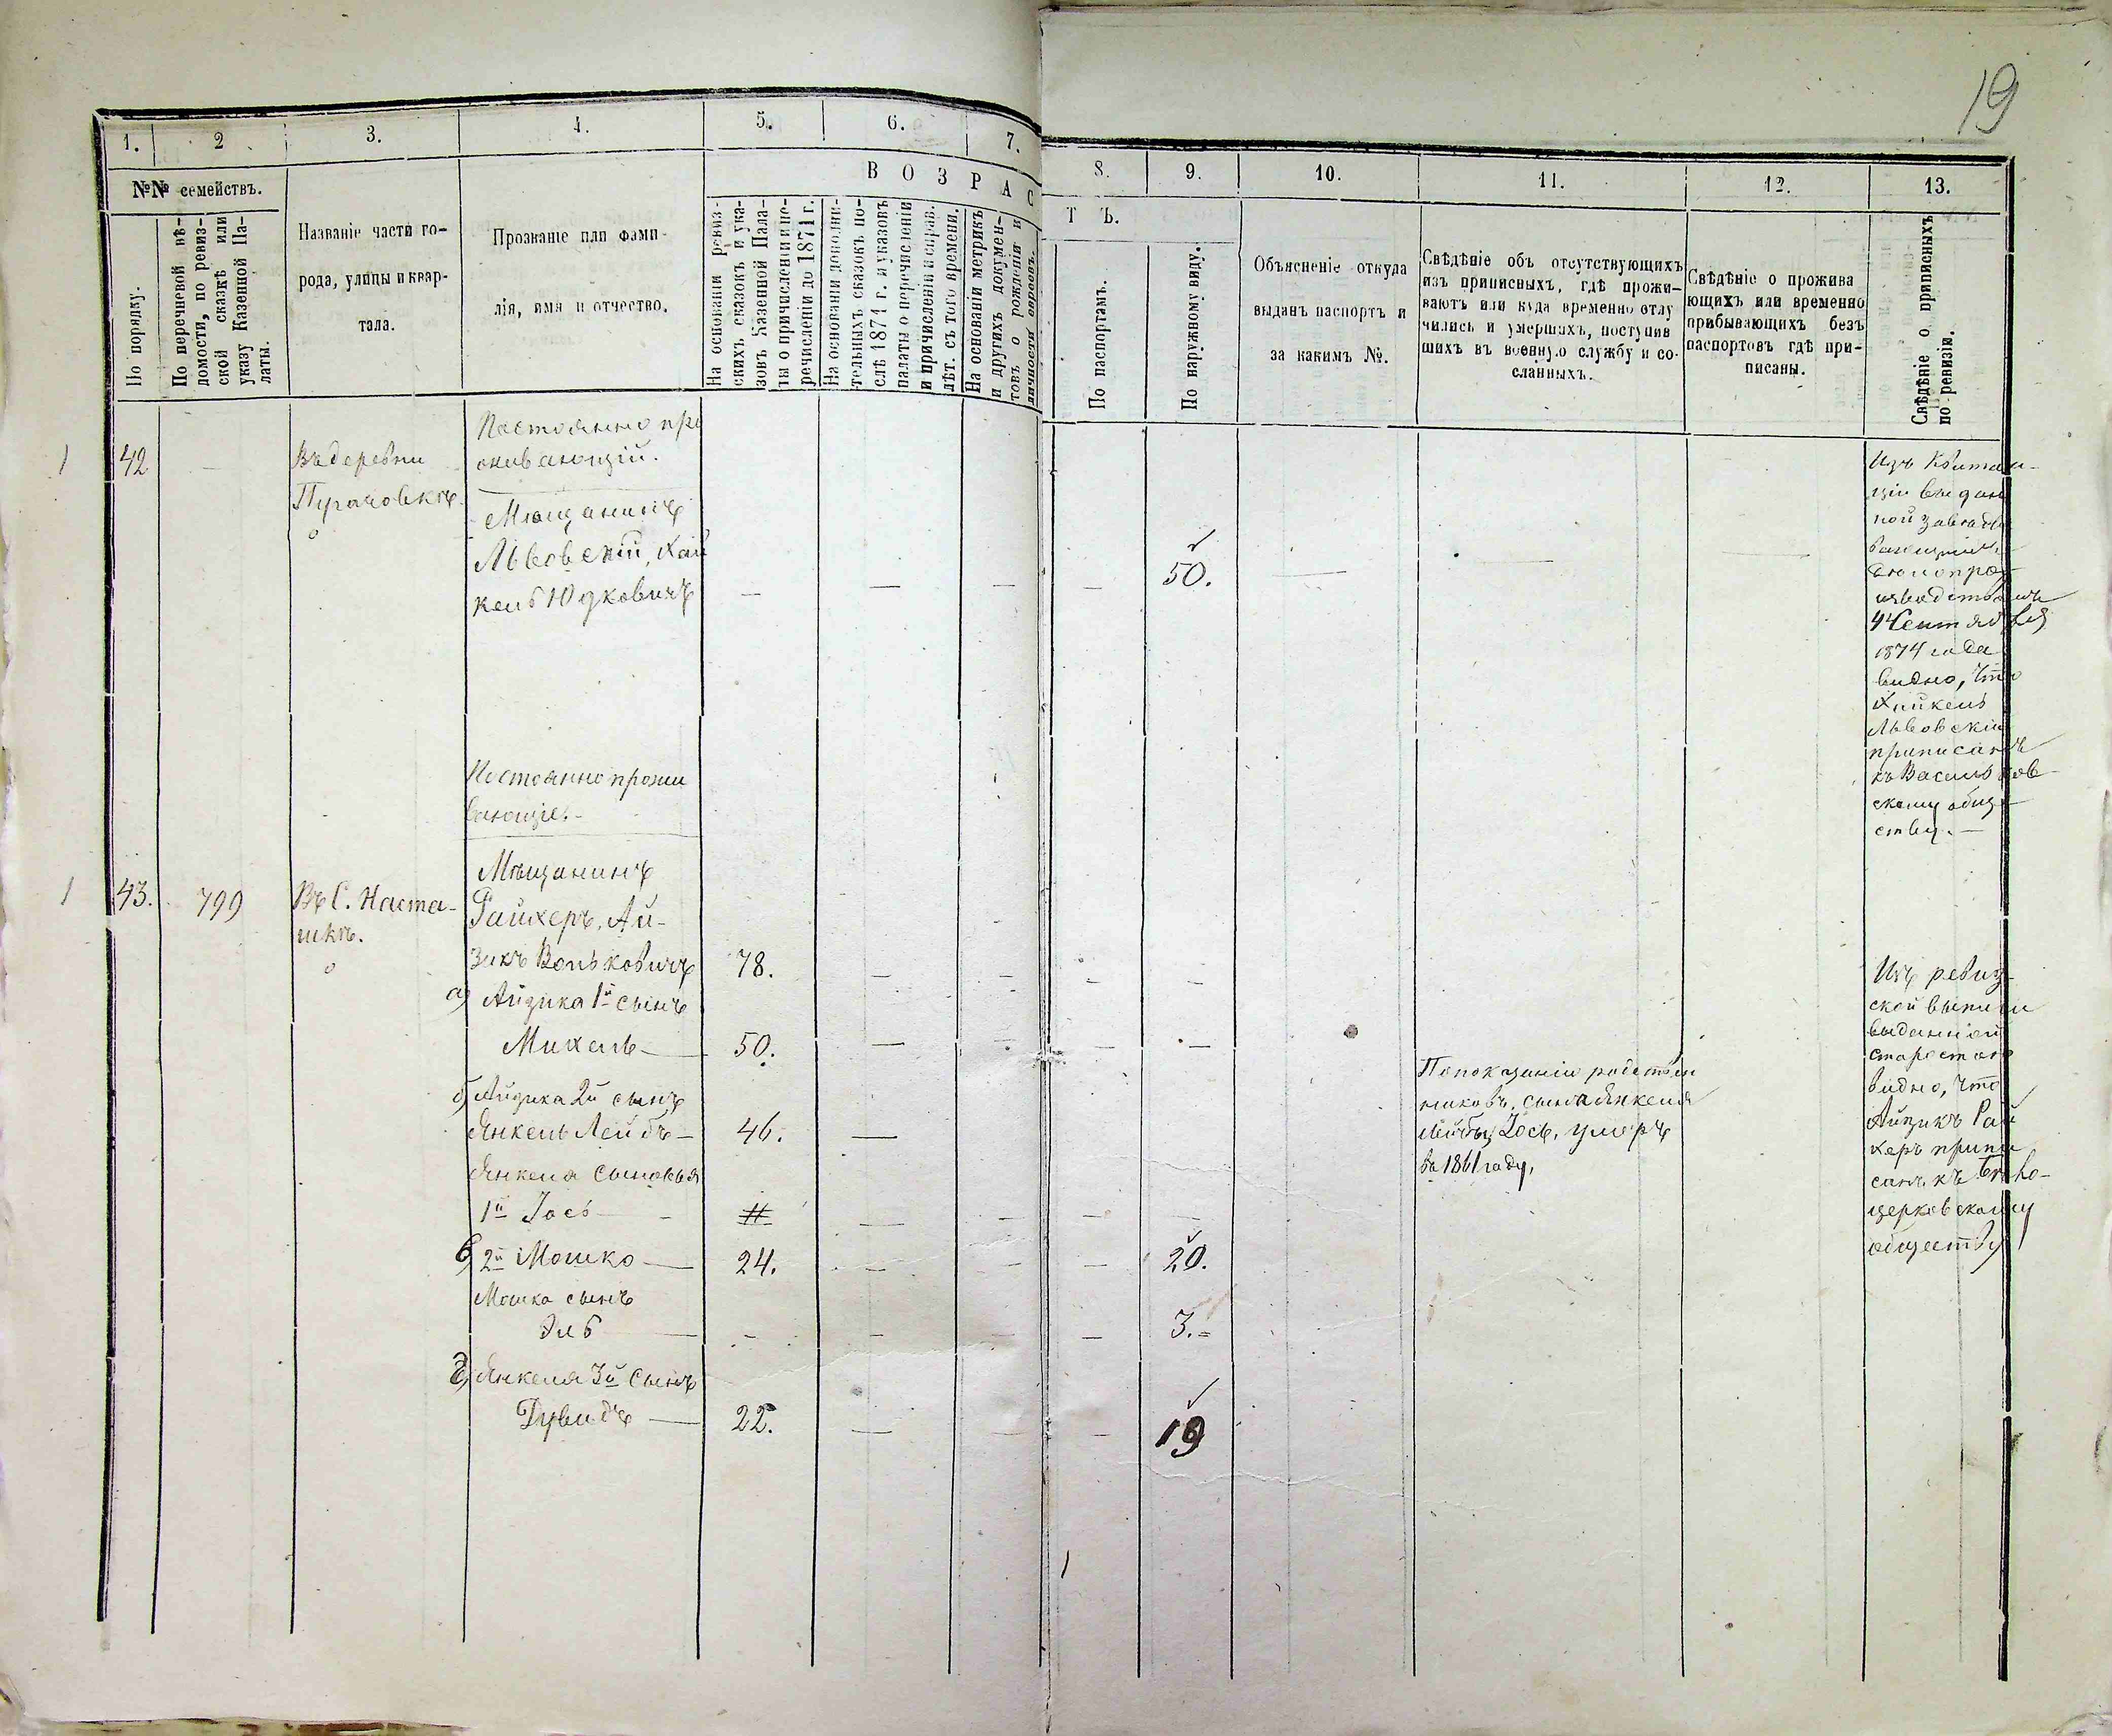 19
1.
2
3.
4.
5.
6.
7.
8.
9.
10.
11.
12.
13.
№№ семействъ.
По порядку.
По перечневой вѣ-
домости, по ревиз-
ской сказкѣ или
указу Казенной Па-
латы.
Названіе части го-
рода, улицы и квар-
тала.
Прозваніе или фами-
лія, имя и отчество.
ВОЗРАС
ТЪ.
На основаніи ревиз-
скихъ сказокъ и ука-
зовъ Казенной Пала-
ты о причисленіи и пе-
речисленіи до 1871 г.
На основаніи дополни-
тельныхъ сказокъ по-
слѣ 1871 г. и указовъ
палаты о перечисленіи
и причисленіи и справ.
лѣт. съ того времени.
На основаніи метрикъ
и другихъ докумен-
товъ о рожденіи и
личности евреевъ.
По паспортамъ.
По наружному виду.
Объясненіе откуда
выданъ паспортъ и
за какимъ №.
Свѣдѣніе объ отсутствующихъ
изъ приписныхъ, гдѣ прожи-
ваютъ или куда временно отлу
чились и умершихъ, поступив
шихъ въ военную службу и со-
сланныхъ.
Свѣдѣніе о прожива
ющихъ или временно
прибывающихъ безъ
паспортовъ гдѣ при-
писаны.
Свѣдѣніе о приписныхъ
по ревизіи.
1
42
Въ деревни
Пугачовкѣ
Постоянно про
живающій.
Мѣщанинъ
Львовскій, Хай
кель Юдковичъ
50.
Изъ Квитан-
ціи выдан
ной завѣды
вающимъ
дѣлопро-
изводствомъ
4 Сентября
1874 года
видно, что
Хайкель
Львовскій
приписанъ
къ Васильков-
скому обще-
ству.
Постоянно прожи
вающіе.
1
43.
799
Въ С. Наста-
шкѣ.
Мѣщанинъ
Райхеръ, Ай-
зикъ Вольковичъ
78.
а) Айзика 1й сынъ
Михель
50.
б) Айзика 2й сынъ
Янкель Лейбъ
46.
Янкеля сыновья
1й Іось
в) 2й Мошко
24.
20.
Мошка сынъ
Эль
3.
г) Янкеля 3й сынъ
Дувидъ
22.
19
По показанію родствен
никовъ, сынъ Янкеля
Лейбы, Іось, умеръ
въ 1861 году,
Изъ ревиз-
ской выписи
выданной
старостою
видно, что
Айзикъ Рай
херъ припи
санъ къ Бѣло-
церковскому
обществу